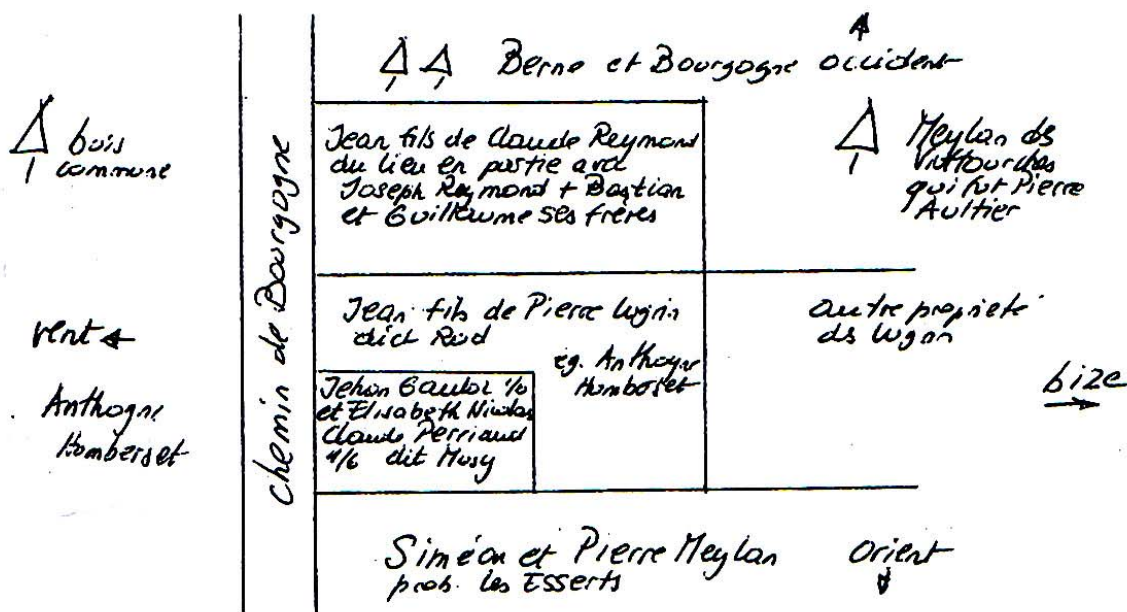 Berne et Bourgogne occident
bois
commune
chemin de Bourgogne
Jean fils de Claude Reymond
du lieu en partie avec
Joseph Reymond + Bastian
et Guillaume ses frères
Meylan ds
qui fut Pierre
Aultier
vent
Anthoyne
Homberset
Jean fils de Pierre Lugrin
dict Rod
eg. Anthoyne
Homberset
autre propriété
ds Lugrin
bize
Jehan Gaulor
et Elisabeth Nicolas
Claude Perriaud
4/6 dit Musy
Siméon et Pierre Meylan
prob. les Esserts
Orient